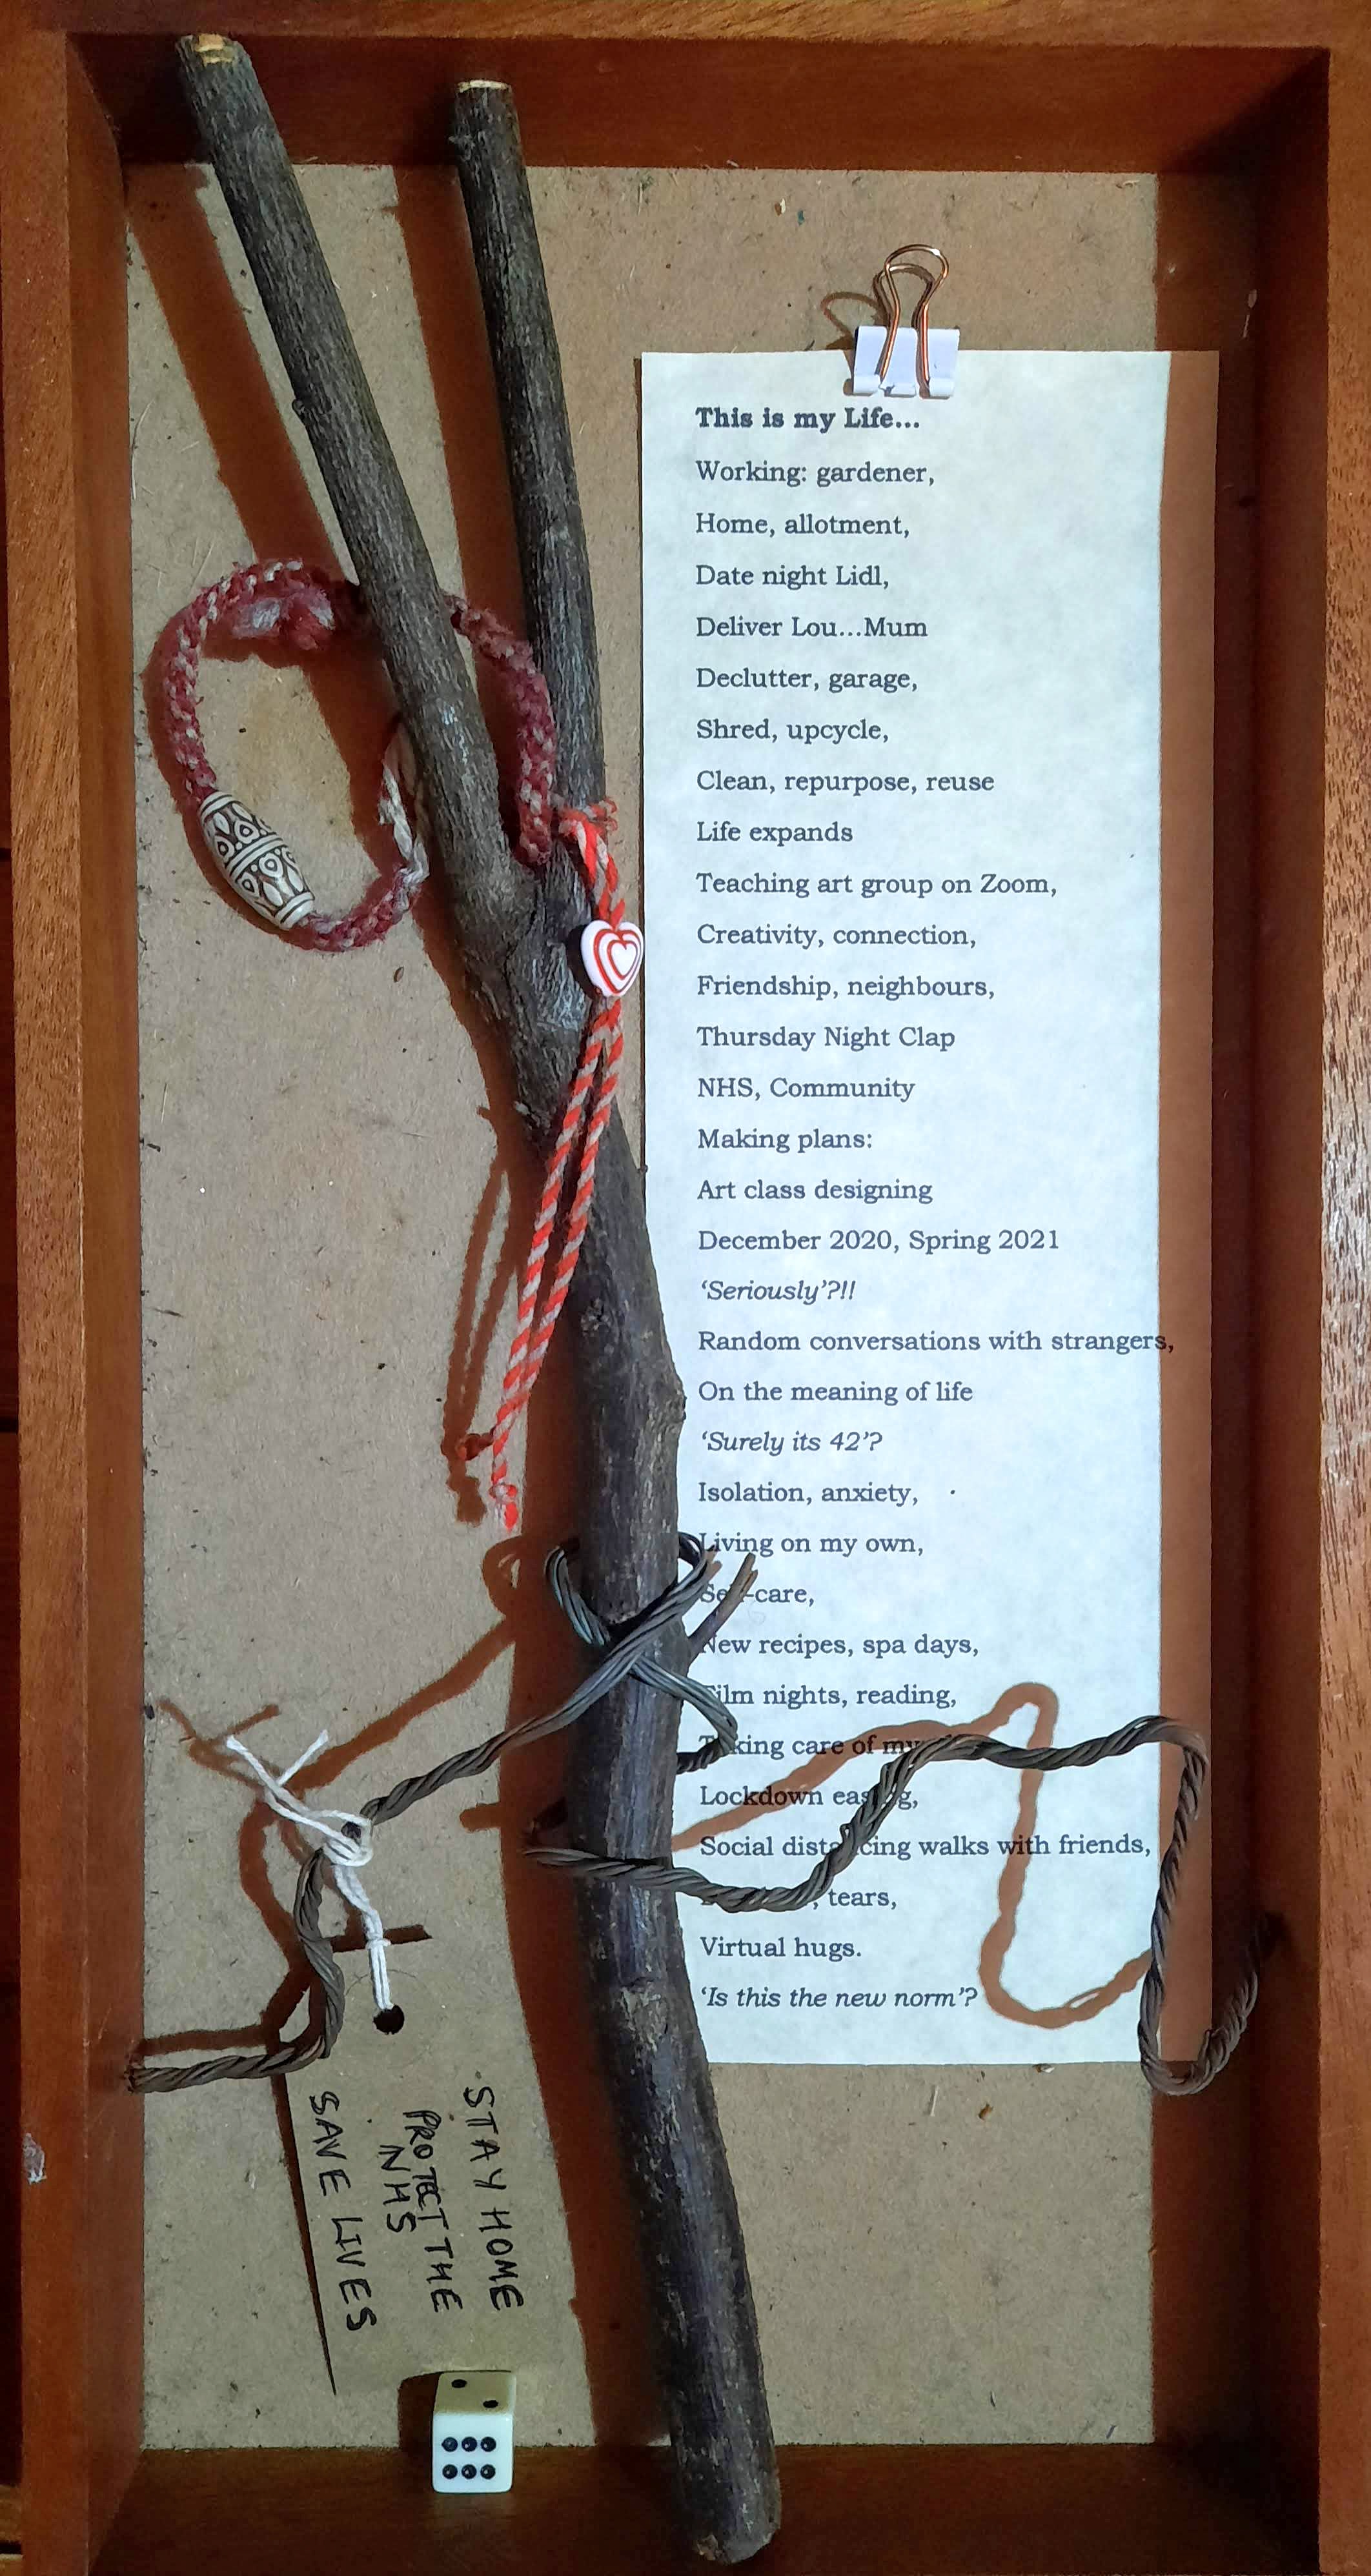 This is my Life...
Working: gardener,
Home, allotment,
Date night Lidl,
Deliver Lou...Mum
Declutter, garage,
Shred, upcycle,
Clean, repurpose, reuse
Life expands
Teaching art group on Zoom,
Creativity, connection,
Friendship, neighbours,
Thursday Night Clap
NHS, Community
Making plans:
Art class designing
December 2020, Spring 2021
‘Seriously’?!!
Random conversations with strangers,
On the meaning of life
‘Surely its 42’?
Isolation, anxiety,
Living on my own,
Self-care,
New recipes, spa days,
Film nights, reading,
Taking care of
Lockdown easing,
Social distancing walks with friends,
tears,
Virtual hugs.
‘Is this the new norm’?
STAY HOME
PROTECT THE
NHS
SAVE LIVES